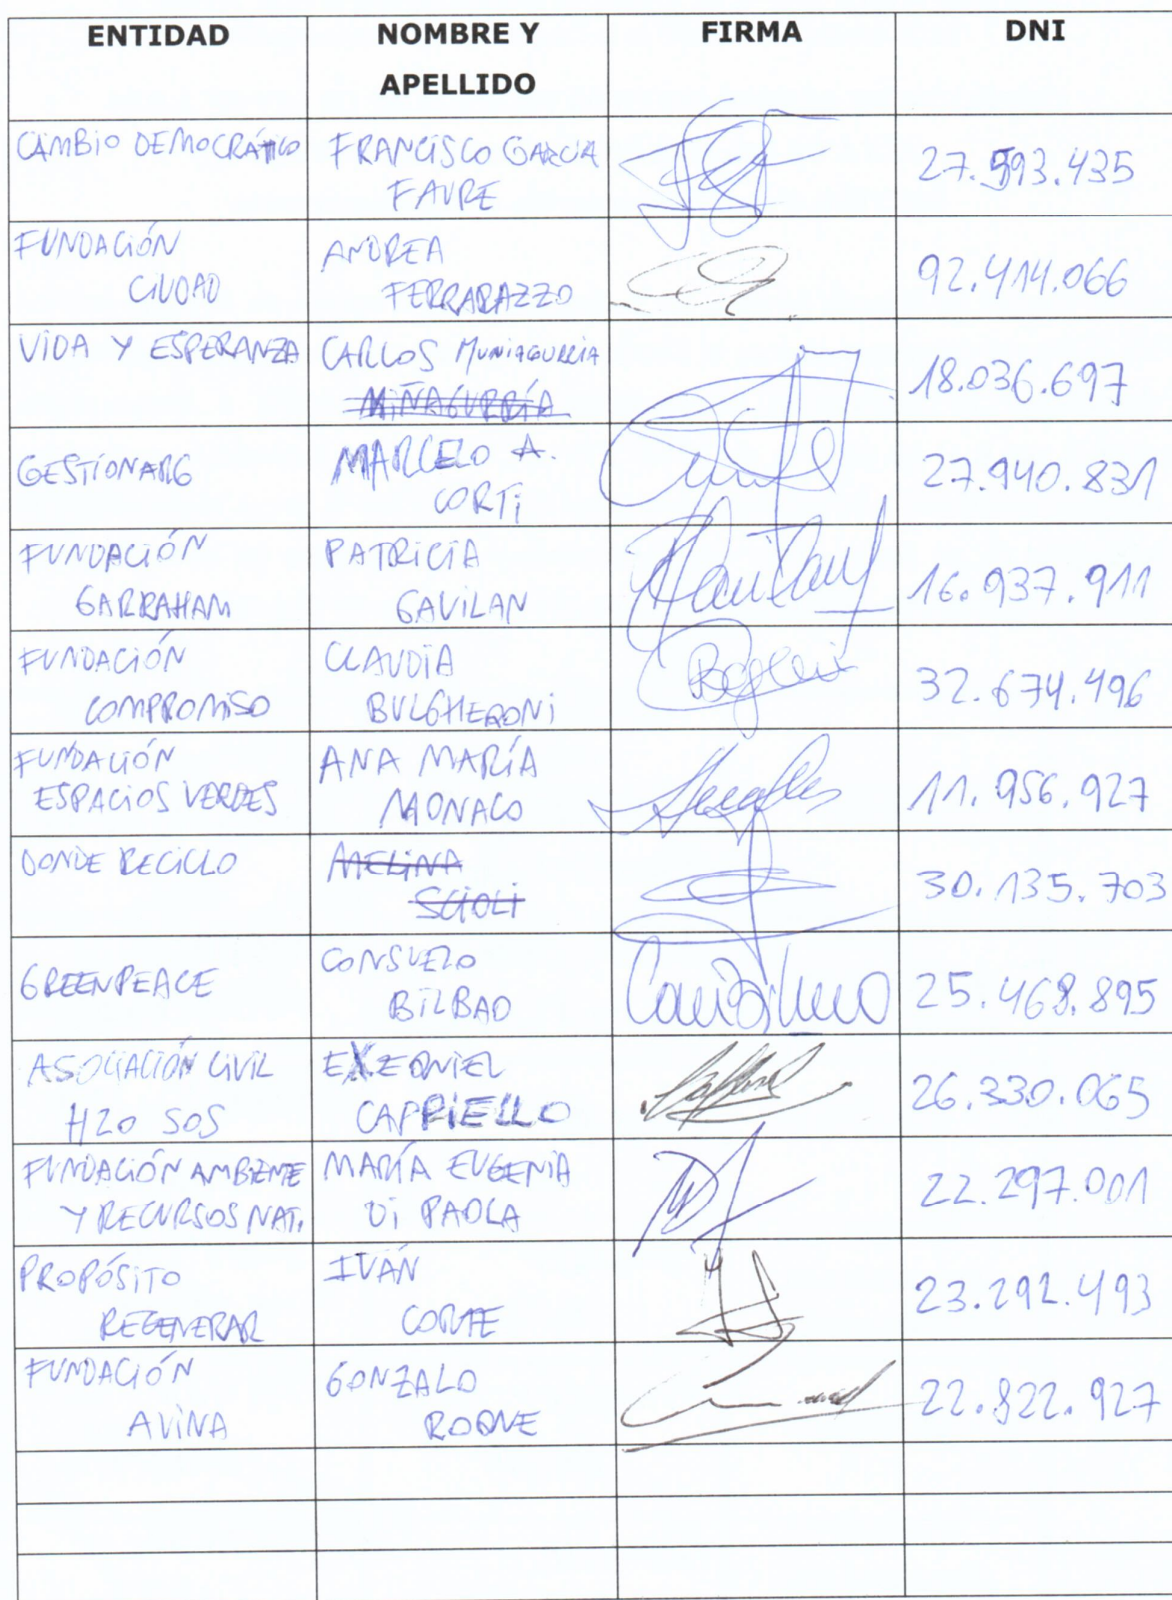 ENTIDAD
NOMBRE Y
APELLIDO
FIRMA
DNI
CAMBIO DEMOCRÁTICO
FRANCISCO GARCIA
FAURE
27.593.435
FUNDACIÓN
CIUDAD
ANDREA
FERRARAZZO
92.414.066
VIDA Y ESPERANZA
CARLOS MUNIAGURRIA
MIÑAGURRÍA
18.036.697
GESTIONARG
MARCELO A.
CORTI
27.940.831
FUNDACIÓN
GARRAHAM
PATRICIA
GAVILAN
16.937.911
FUNDACIÓN
COMPROMISO
CLAUDIA
BULGHERONI
32.674.496
FUNDACIÓN
ESPACIOS VERDES
ANA MARÍA
MONACO
11.956.927
DONDE RECICLO
MELINA
SCIOLI
30.135.703
GREENPEACE
CONSUELO
BILBAO
25.468.895
ASOCIACIÓN CIVIL
H2O SOS
EXEQUIEL
CAPPIELLO
26.330.065
FUNDACIÓN AMBIENTE
Y RECURSOS NAT.
MARÍA EUGENIA
DI PAOLA
22.297.001
PROPÓSITO
REGENERAR
IVÁN
CORTE
23.292.493
FUNDACIÓN
AVINA
GONZALO
ROQUE
22.822.927